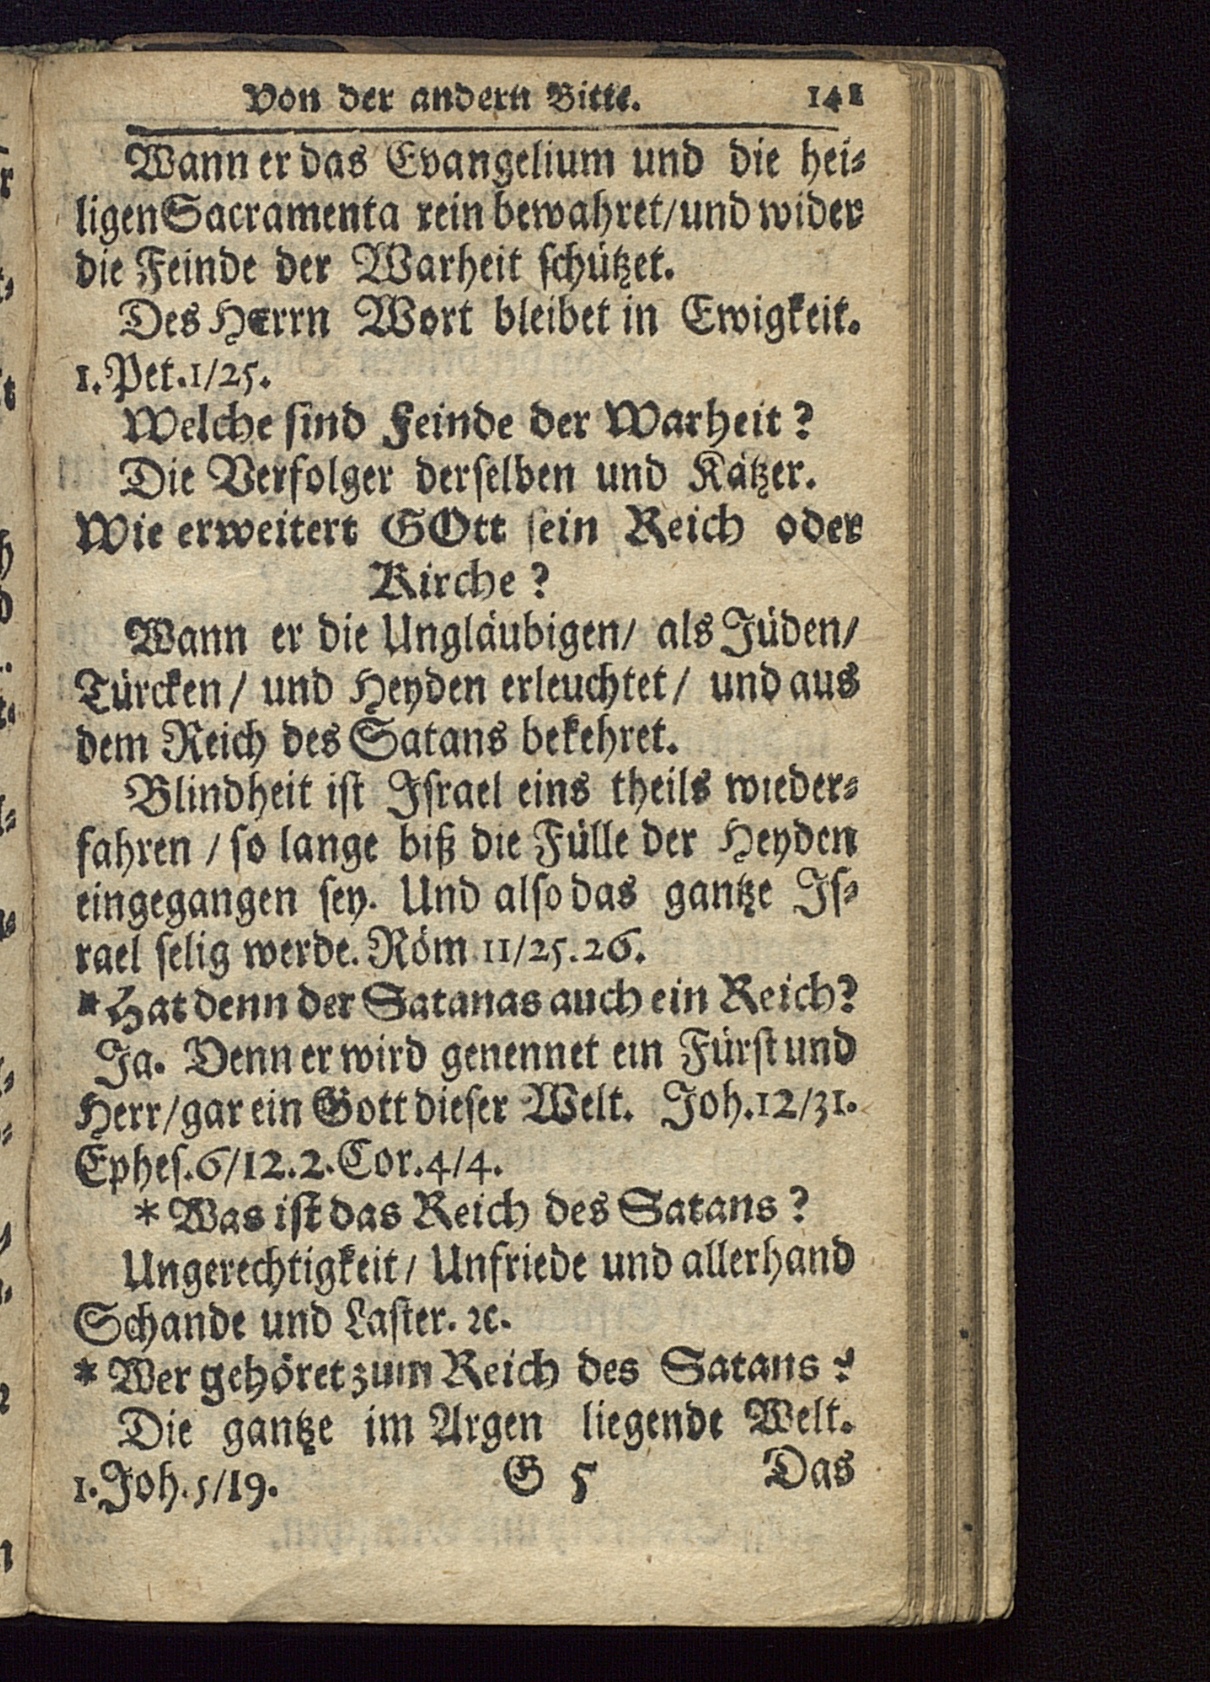 Von der andern Bitte. 141
Wann er das Evangelium und die hei⸗
ligen Sacramenta rein bewahret/ und wider
die Feinde der Warheit schützet.
Des HErrn Wort bleibet in Ewigkeit.
1. Pet. 1/25.
Welche sind Feinde der Warheit?
Die Verfolger derselben und Kätzer.
Wie erweitert GOtt sein Reich oder
Kirche?
Wann er die Ungläubigen/ als Jüden/
Türcken/ und Heyden erleuchtet/ und aus
dem Reich des Satans bekehret.
Blindheit ist Israel eins theils wieder⸗
fahren / so lange biß die Fülle der Heyden
eingegangen sey. Und also das gantze Is⸗
rael selig werde. Röm 11/25.26.
* Hat denn der Satanas auch ein Reich?
Ja. Denn er wird genennet ein Fürst und
Herr/ gar ein Gott dieser Welt. Joh. 12/31.
Ephes. 6/12. 2. Cor. 4/4.
* Was ist das Reich des Satans?
Ungerechtigkeit/ Unfriede und allerhand
Schande und Laster. ꝛc.
* Wer gehöret zum Reich des Satans?
Die gantze im Argen liegende Welt.
1. Joh. 5/19. G 5 Das